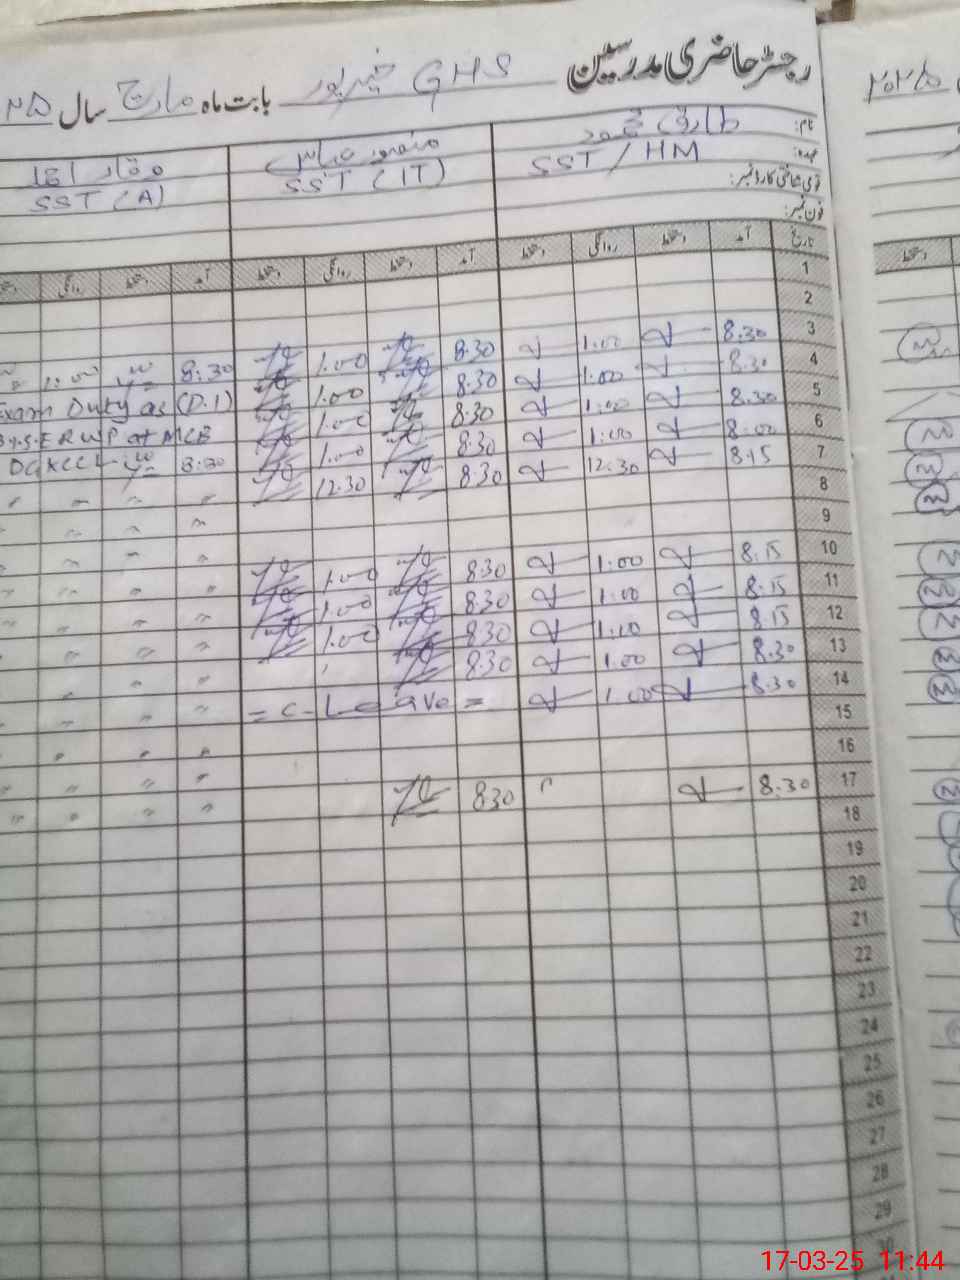 رجسٹر حاضری مدرسین GHS خیرپور بابت ماہ مارچ سال ۲۵
نام: طارق محمود منصور عباس وقار احمد
عہدہ: SST / HM SST (IT) SST (A)
قومی شناختی کارڈ نمبر:
فون نمبر:
تاریخ آمد دستخط روانگی دستخط آمد دستخط روانگی دستخط آمد دستخط روانگی دستخط
1
2
3 8.30 1.00 8.30 1.00 8:30 1:00
4 8.30 1.00 8.30 1.00 Exam Duty as (D.I)
5 8.30 1.00 8.30 1.00 B.I.S.E RWP at MCB
6 8.00 1.00 8.30 1.00 8:30
7 8.15 12.30 8.30 12.30 " " " "
8 "
9 " " "
10 8.15 1.00 8.30 1.00 " " " "
11 8.15 1.00 8.30 1.00 " " " "
12 8.15 1.00 8.30 1.00 " " " "
13 8.30 1.00 8.30 " " " "
14 8.30 1.00 = C - Leave = " " " "
15 " " "
16 " " " "
17 8.30 8.30 " " " "
18
19
20
21
22
23
24
25
26
27
28
29
30
۲۰۲۵
دستخط
17-03-25 11:44